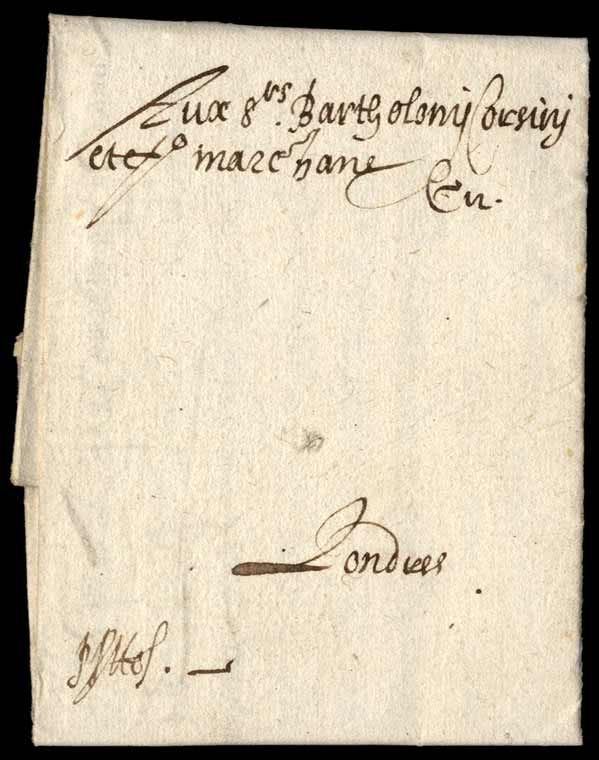 Aux Srs. Bartholomij Corsinij
et co marchans
En.
Londres